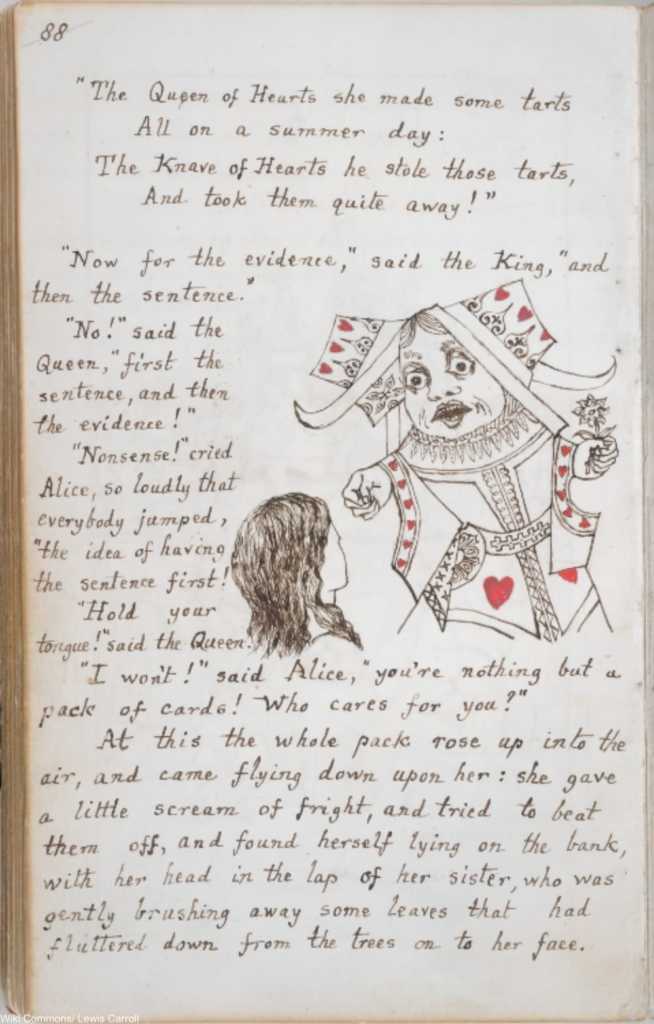 88
"The Queen of Hearts she made some tarts
All on a summer day:
The Knave of Hearts he stole those tarts,
And took them quite away!"
"Now for the evidence," said the King, "and
then the sentence."
"No!" said the
Queen, "first the
sentence, and then
the evidence!"
"Nonsense!" cried
Alice, so loudly that
everybody jumped,
"the idea of having
the sentence first!
"Hold your
tongue!" said the Queen.
"I won't!" said Alice, "you're nothing but a
pack of cards! Who cares for you?"
At this the whole pack rose up into the
air, and came flying down upon her: she gave
a little scream of fright, and tried to beat
them off, and found herself lying on the bank,
with her head in the lap of her sister, who was
gently brushing away some leaves that had
fluttered down from the trees on to her face.
Wiki Commons/ Lewis Carroll